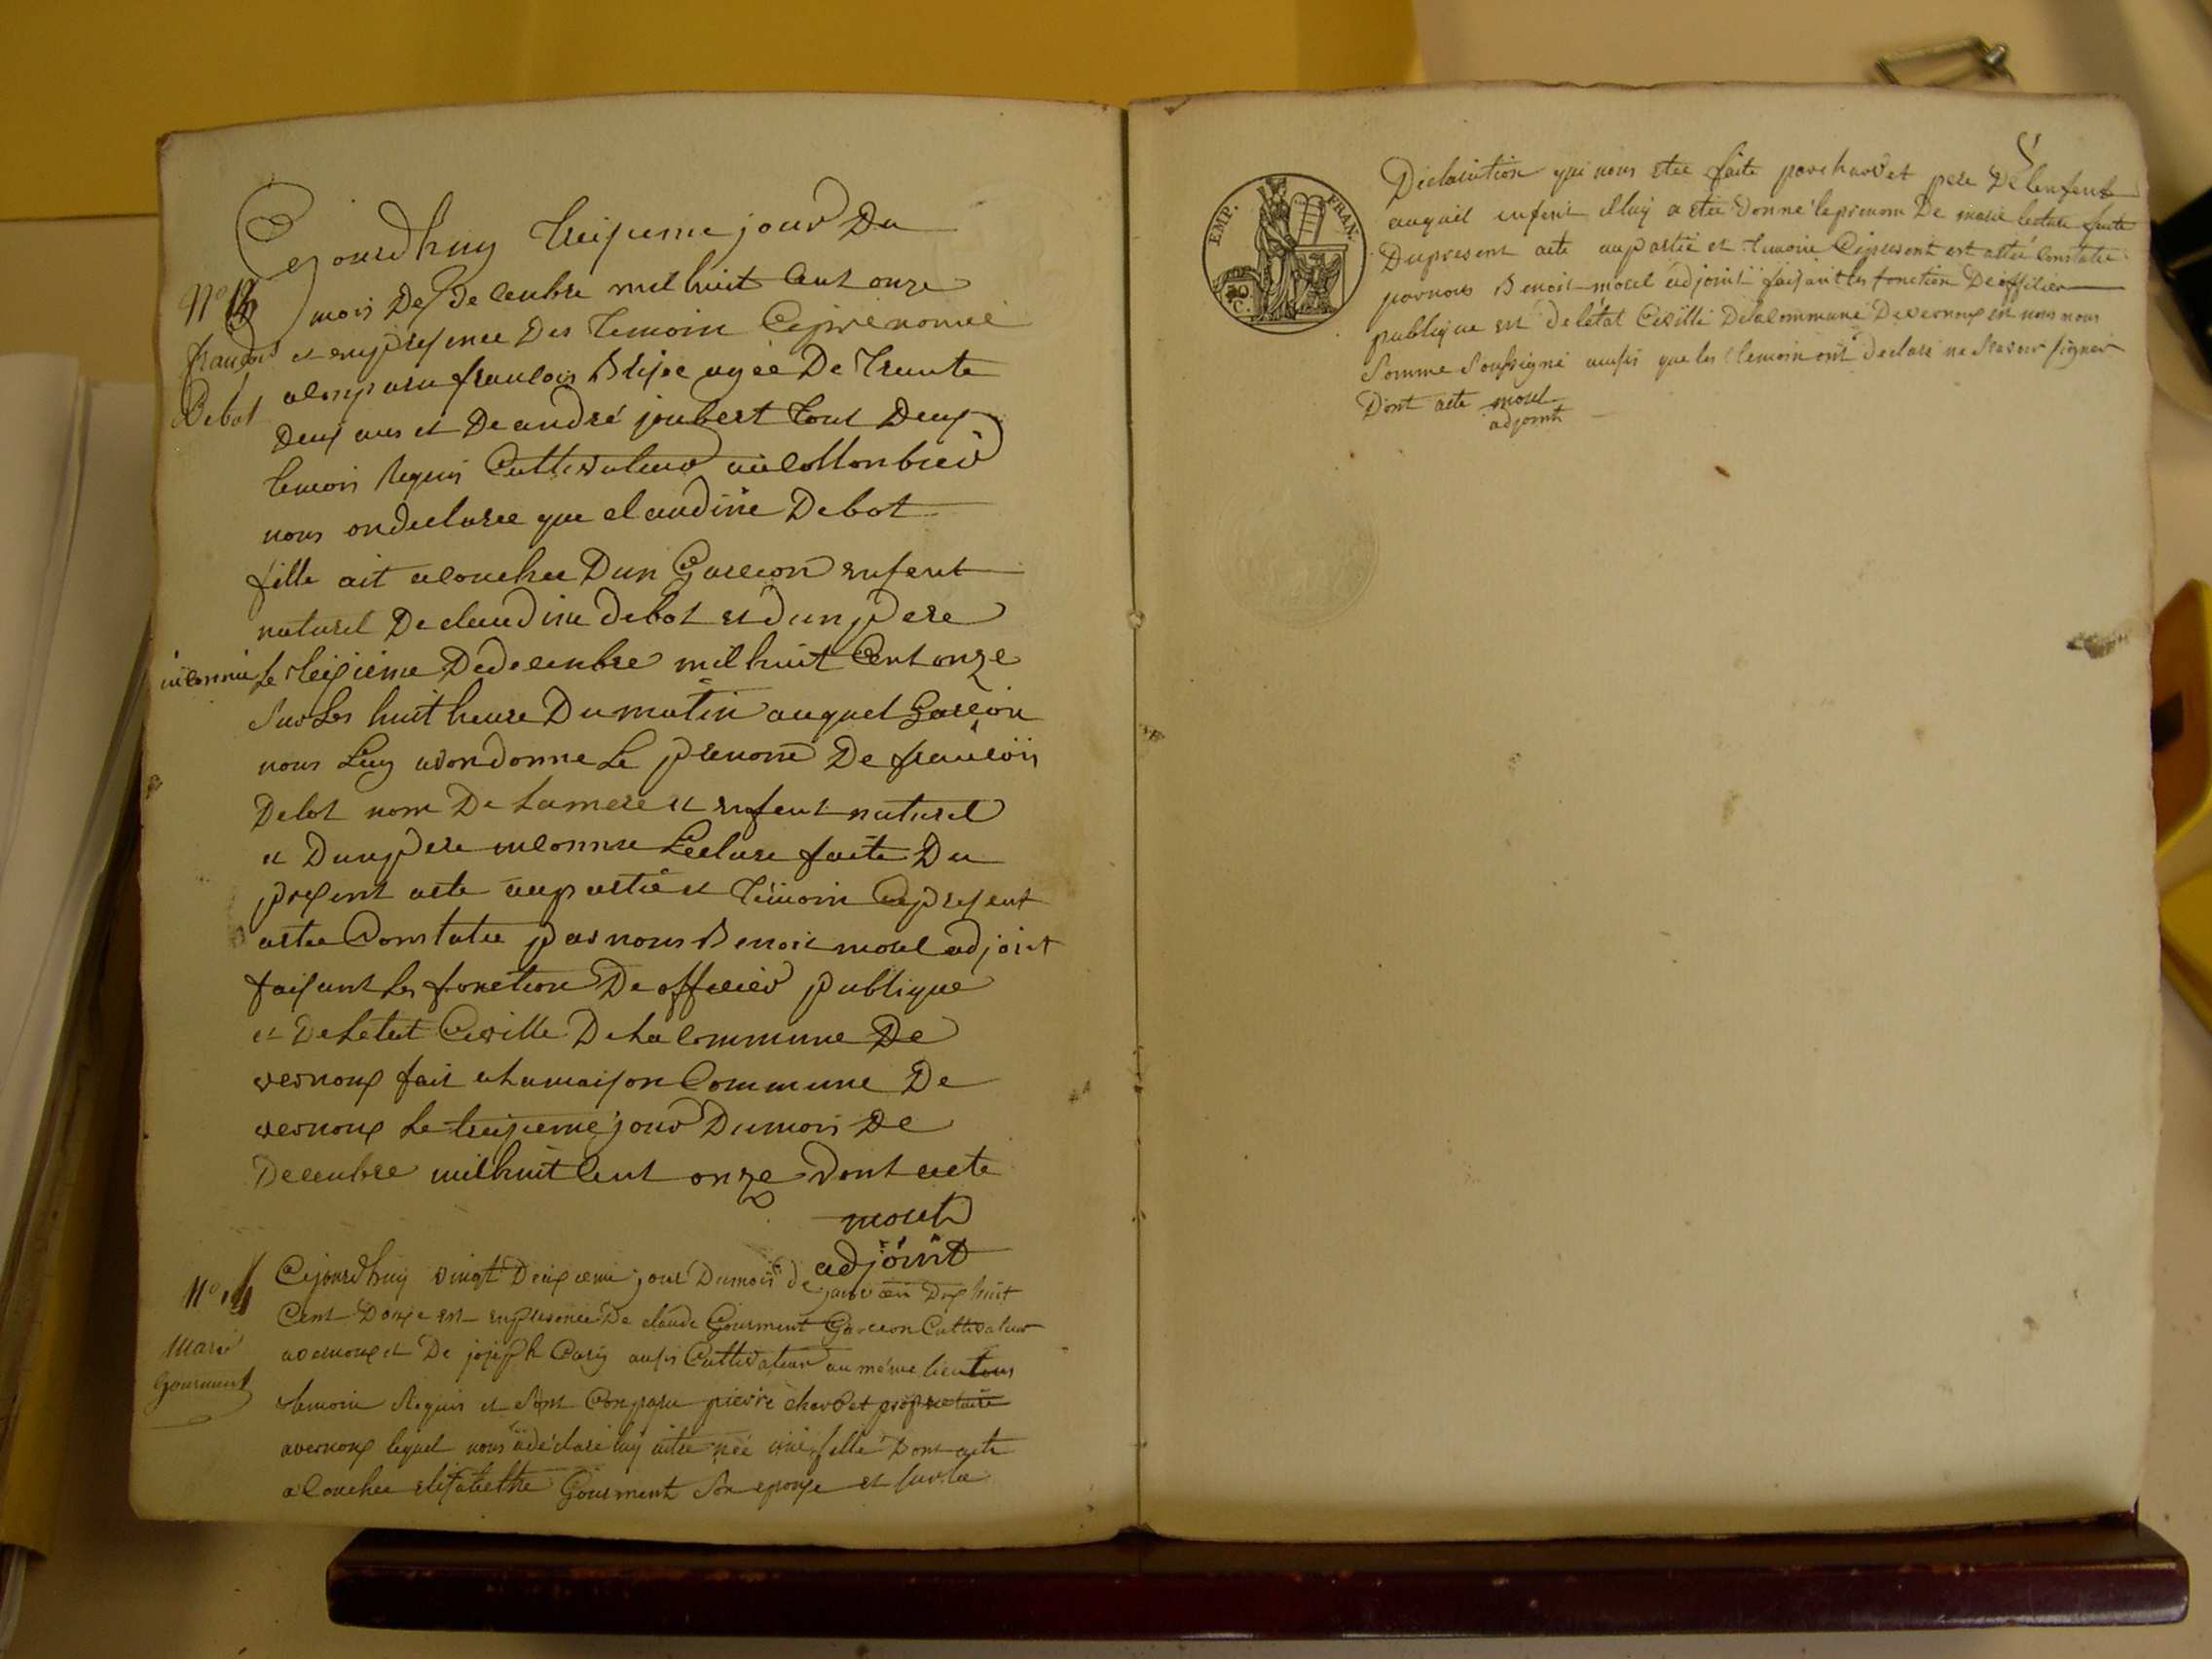 Cejourdhuy treisieme jour du
N° 13
mois De Decenbre mil huit Cent onze
francois
et en presence Des temoin Ci prenomee
Debot
a conparu francois Brisee agée De trente
Deux ans et De andré joubert tout Deux
temoin Requis Cultivateur au Collonbier
nous on declaree que claudine Debot
fille ait acouchee Dun Garcon enfent
naturel De claudine debot et dun pere
inconnue Le treisieme De decenbre mil huit Cent onze
sur Les huit heure Du matin auquel Garcon
nous Luy avon donne Le prenom De francois
Debot nom De La mere et enfent naturel
et Dun pere inconnu Lecture faite Du
present acte au partie et temoin Ce present
a etee Constatee par nous Benoit morel adjoint
faisant Les fonction De officier publique
et De Letat Civille De La Commune De
vernoux fait a La maison Commune De
vernoux Le treisieme jour Du mois De
Decenbre mil huit Cent onze Dont acte
morel
adjoint
N° 14
Cejourdhuy vingt Deuxieme jour Du mois de janv
huit
Cent Douze est en presence De claude Gourment Garcon Cultivateur
Marie
a vernoux et De joseph Cary ausi Cultivateur au même lieu tous
Gourment
temoin Requis et sont Conparu pierre charvet propriettaire
a vernoux lequel nous a déclaré luy aitre née une fille Dont acte
acouchee elisabethe Gourment son epouse et sur la
Declaration qui nous etee faite par charvet pere De lenfent
EMP. FRAN.
C.
auquel enfent il luy a etee donné le prenom De marie lecture faite
Du present acte au partie et temoin Ce present est attée Constatee
par nous Benoit morel adjoint faisant les fonction De officier
publique est de létat Civille De la Commune De vernoux est nous nous
somme soussigné ausis que les temoin ont Declaré ne savoir signer
Dont acte morel
adjoint